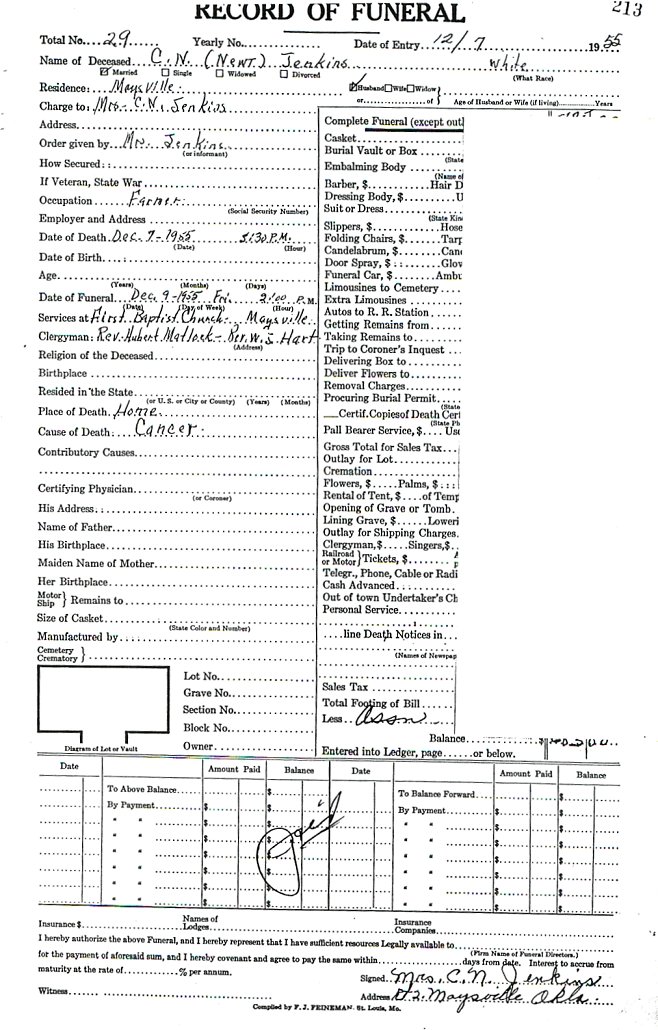 RECORD OF FUNERAL
213
Total No. 29 Yearly No. Date of Entry 12/7 1955
Name of Deceased C. N. (Newt) Jenkins White
Married Single Widowed Divorced (What Race)
Residence: Maysville. Husband Wife Widow
or of Age of Husband or Wife (if living) Years
Charge to: Mrs. C. N. Jenkins
Address
Order given by Mrs. Jenkins
(or informant)
How Secured:
If Veteran, State War
Occupation Farmer
(Social Security Number)
Employer and Address
Date of Death Dec. 7-1955 5:30 P.M.
(Date) (Hour)
Date of Birth
Age
(Years) (Months) (Days)
Date of Funeral Dec. 9-1955 Fri. 2:00 P.M.
(Date) (Day of Week) (Hour)
Services at First Baptist Church - Maysville.
Clergyman: Rev. Hubert Matlock - Rev. W. S. Hart
(Address)
Religion of the Deceased
Birthplace
Resided in the State
(or U. S. or City or County) (Years) (Months)
Place of Death Home
Cause of Death: Cancer.
Contributory Causes
Certifying Physician
(or Coroner)
His Address
Name of Father
His Birthplace
Maiden Name of Mother
Her Birthplace
Motor Ship } Remains to
Size of Casket
(State Color and Number)
Manufactured by
Cemetery Crematory }
Lot No.
Grave No.
Section No.
Block No.
Owner
Diagram of Lot or Vault
Complete Funeral (except outl
Casket
Burial Vault or Box
(State
Embalming Body
(Name of
Barber, $ Hair D
Dressing Body, $ U
Suit or Dress
(State Kin
Slippers, $ Hose
Folding Chairs, $ Tarp
Candelabrum, $ Can
Door Spray, $ Glov
Funeral Car, $ Ambu
Limousines to Cemetery
Extra Limousines
Autos to R. R. Station
Getting Remains from
Taking Remains to
Trip to Coroner's Inquest
Delivering Box to
Deliver Flowers to
Removal Charges
Procuring Burial Permit
(State
Certif. Copies of Death Cert
(State Ph
Pall Bearer Service, $ Use
Gross Total for Sales Tax
Outlay for Lot
Cremation
Flowers, $ Palms, $
Rental of Tent, $ of Temp
Opening of Grave or Tomb
Lining Grave, $ Loweri
Outlay for Shipping Charges
Clergyman, $ Singers, $
Railroad or Motor } Tickets, $
Telegr., Phone, Cable or Radi
Cash Advanced
Out of town Undertaker's Ch
Personal Service
line Death Notices in
(Names of Newspap
Sales Tax
Total Footing of Bill
Less Assn
Balance $
Entered into Ledger, page or below.
Date Amount Paid Balance Date Amount Paid Balance
To Above Balance $ To Balance Forward $
By Payment $ By Payment $
" " $ " " $
" " $ " " $
" " $ " " $
" " $ " " $
" " $ " " $
Paid
Insurance $ Names of Lodges Insurance Companies
I hereby authorize the above Funeral, and I hereby represent that I have sufficient resources Legally available to
(Firm Name of Funeral Directors.)
for the payment of aforesaid sum, and I hereby covenant and agree to pay the same within days from date. Interest to accrue from
maturity at the rate of % per annum.
Signed Mrs. C. N. Jenkins
Witness Address Rt 2. Maysville Okla.
Compiled by F. J. FEINEMAN, St. Louis, Mo.